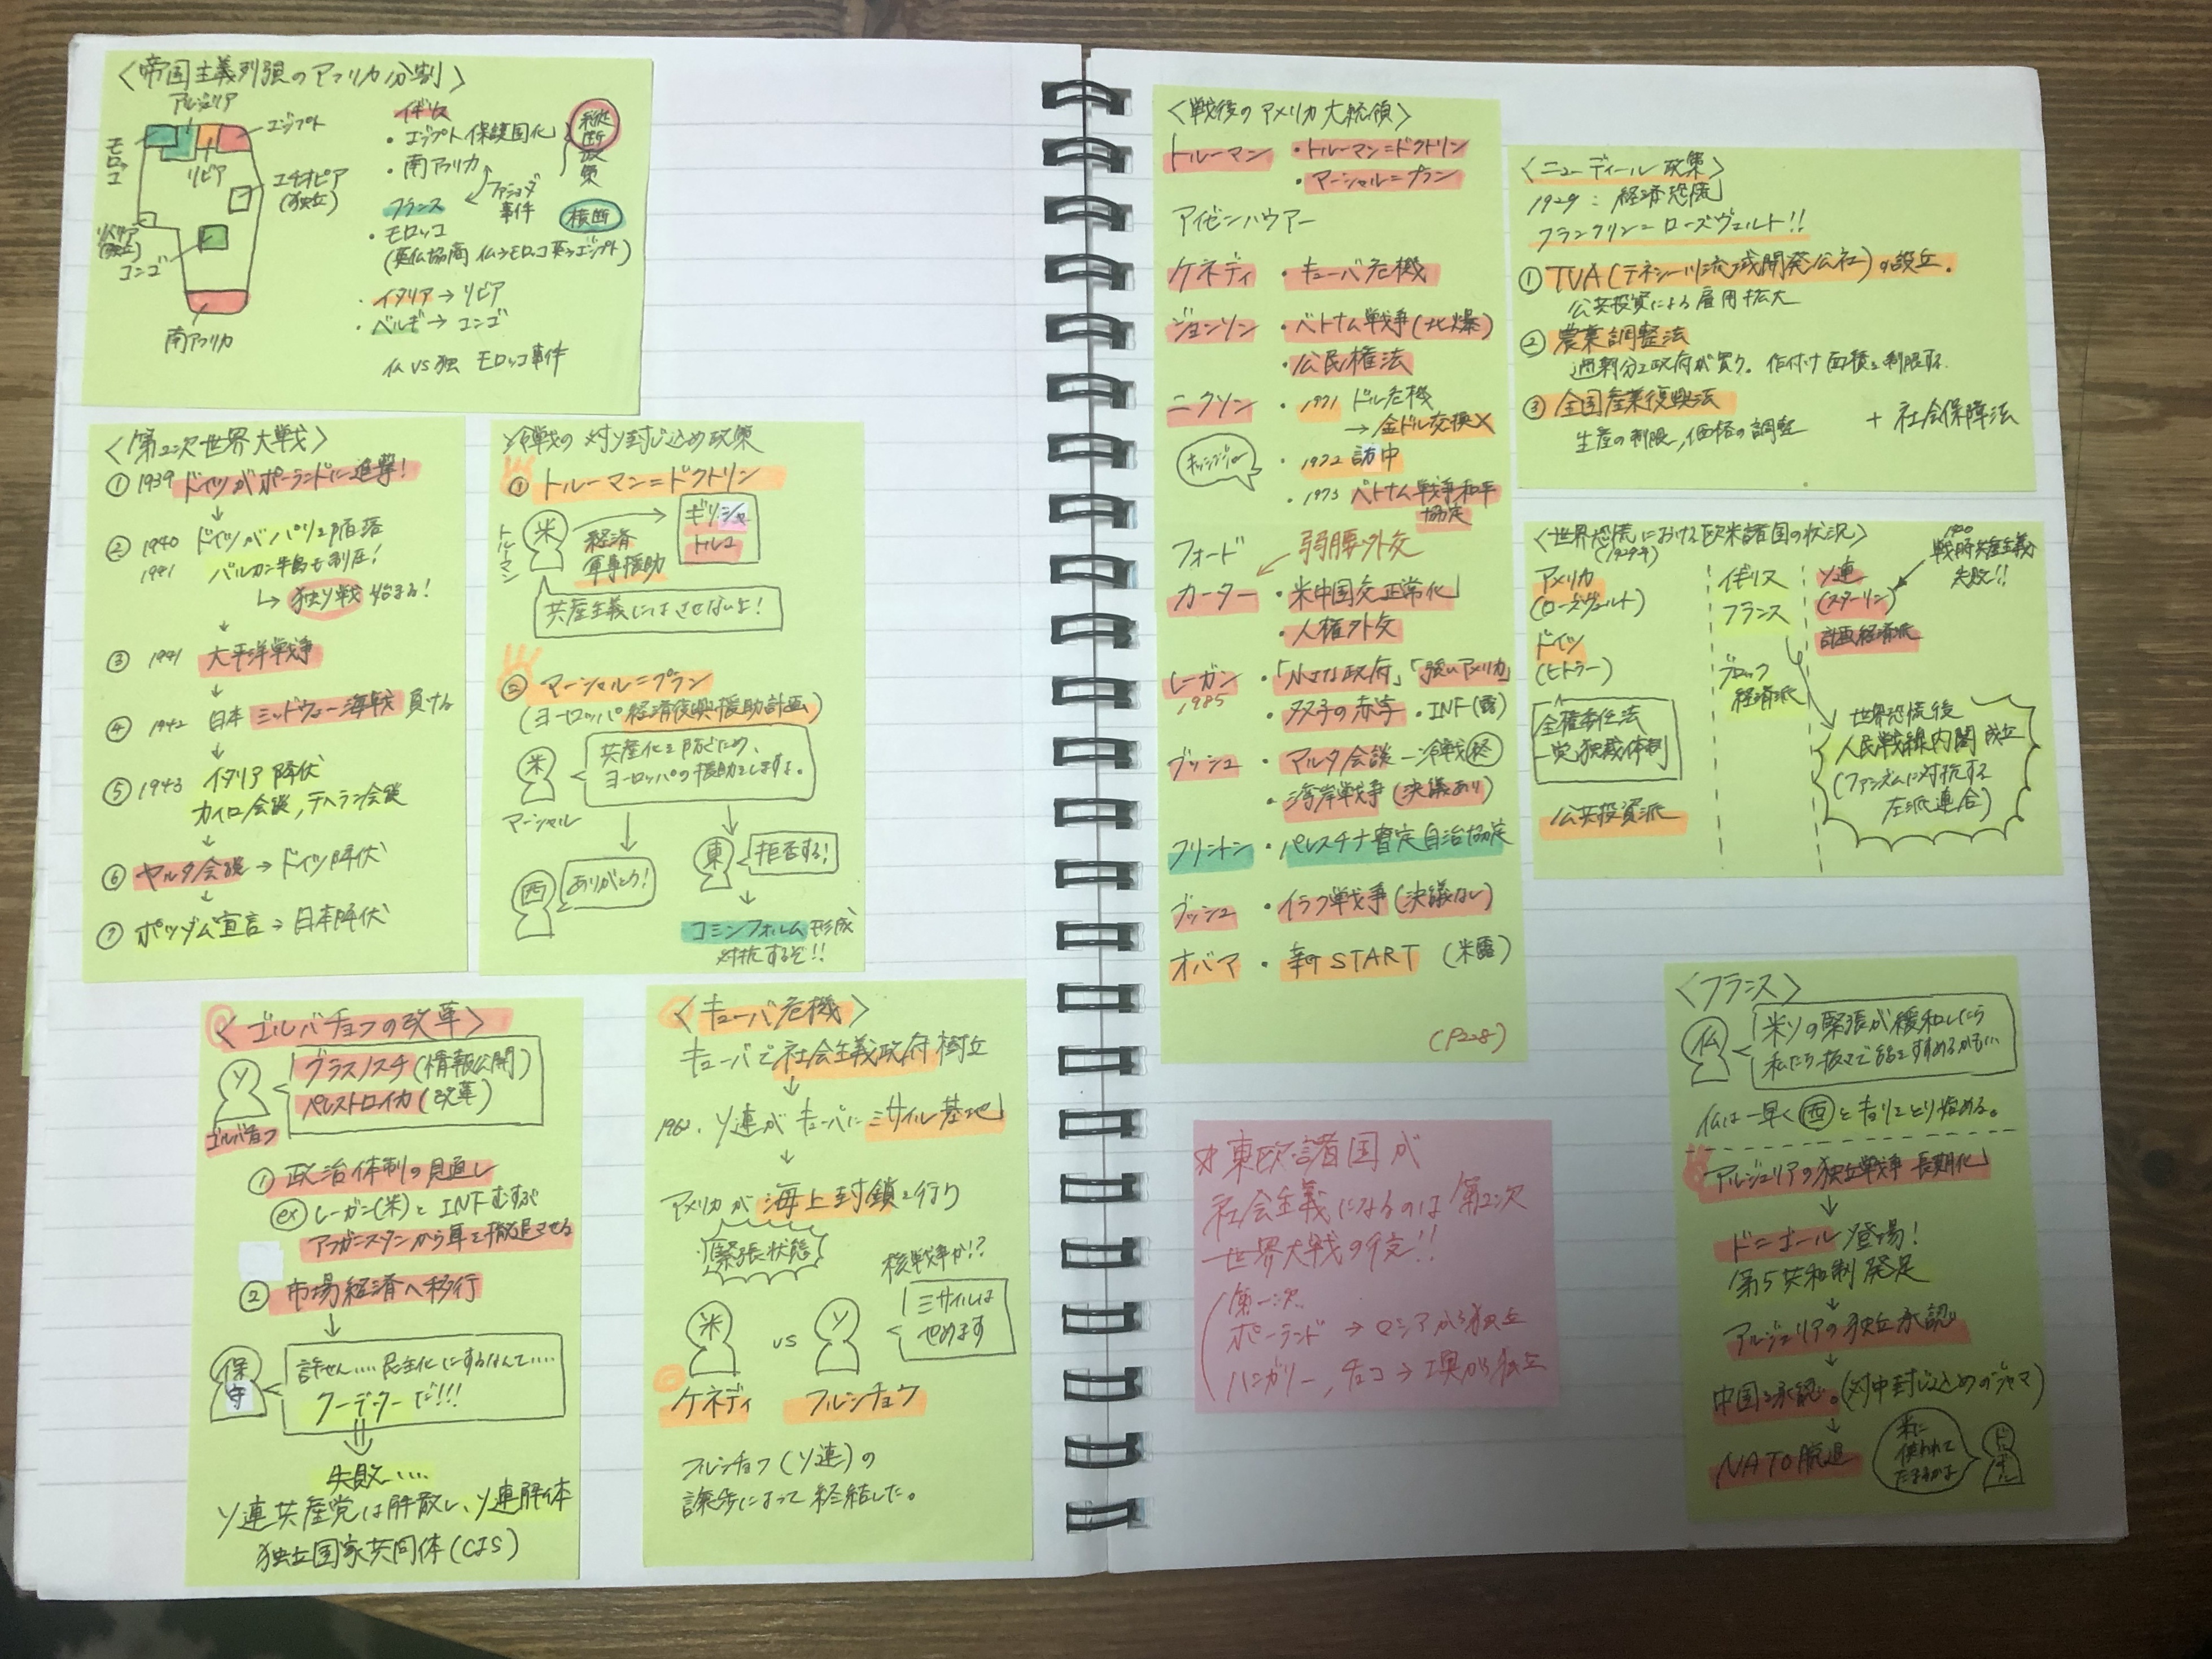 〈帝国主義列強のアフリカ分割〉
アルジェリア
エジプト
モロッコ
リビア
エチオピア
(独立)
リベリア
(独立)
コンゴ
南アフリカ
イギリス
・エジプト保護国化
・南アフリカ
縦断政策
ファショダ
事件
フランス
横断
・モロッコ
(英仏協商 仏→モロッコ 英→エジプト)
・イタリア→リビア
・ベルギー→コンゴ
仏 VS 独 モロッコ事件
〈第2次世界大戦〉
① 1939 ドイツがポーランドに進撃!
↓
② 1940 ドイツがパリを陥落
1941 バルカン半島も制圧!
↳ 独ソ戦 始まる!
↓
③ 1941 太平洋戦争
↓
④ 1942 日本 ミッドウェー海戦 負ける
↓
⑤ 1943 イタリア降伏
カイロ会談, テヘラン会談
↓
⑥ ヤルタ会談 → ドイツ降伏
↓
⑦ ポツダム宣言 → 日本降伏
冷戦の対ソ封じ込め政策
① トルーマン=ドクトリン
トルーマン
米
経済
軍事援助
ギリシャ
トルコ
共産主義にはさせないよ!
② マーシャル=プラン
(ヨーロッパ経済復興援助計画)
米
共産化を防ぐため、
ヨーロッパの援助をしますよ。
マーシャル
↓
↓
西
ありがとう!
東
拒否する!
↓
コミンフォルム形成
対抗するぞ!!
〈ゴルバチョフの改革〉
ソ
グラスノスチ(情報公開)
ペレストロイカ(改革)
ゴルバチョフ
① 政治体制の見直し
ex レーガン(米)と INFむすぶ
アフガニスタンから軍を撤退させる
② 市場経済へ移行
↓
保守
許せん…. 民主化にするなんて….
クーデターだ!!!
失敗….
ソ連共産党は解散し、ソ連解体
独立国家共同体(CIS)
〈キューバ危機〉
キューバで社会主義政府樹立
↓
1962. ソ連がキューバにミサイル基地
↓
アメリカが海上封鎖を行う
緊張状態
核戦争か!?
米 VS ソ
ミサイルは
やめます
ケネディ フルシチョフ
フルシチョフ(ソ連)の
譲歩によって終結した。
〈戦後のアメリカ大統領〉
トルーマン ・トルーマン=ドクトリン
・マーシャル=プラン
アイゼンハウアー
ケネディ ・キューバ危機
ジョンソン ・ベトナム戦争(北爆)
・公民権法
ニクソン ・1971 ドル危機
→ 金ドル交換×
キッシンジャー
・1972 訪中
・1973 ベトナム戦争和平
協定
フォード
弱腰外交
カーター ・米中国交正常化
・人権外交
レーガン ・「小さな政府」「強いアメリカ」
1985
・双子の赤字 ・INF(露)
ブッシュ ・マルタ会談 — 冷戦終
・湾岸戦争(決議あり)
クリントン ・パレスチナ暫定自治協定
ブッシュ ・イラク戦争(決議なし)
オバマ ・新START (米露)
(P228)
〈ニューディール政策〉
1929 : 経済恐慌
フランクリン=ローズヴェルト!!
① TVA(テネシー川流域開発公社)の設立.
公共投資による雇用拡大
② 農業調整法
過剰分を政府が買う. 作付け面積を制限する.
③ 全国産業復興法
生産の制限, 価格の調整
+ 社会保障法
〈世界恐慌における欧米諸国の状況〉
(1929年)
アメリカ
(ローズヴェルト)
ドイツ
(ヒトラー)
全権委任法
一党独裁体制
公共投資派
イギリス
フランス
ブロック
経済派
ソ連
(スターリン)
計画経済派
1920
戦時共産主義
失敗!!
世界恐慌後
人民戦線内閣 成立
(ファシズムに対抗する
左派連合)
※東欧諸国が
社会主義になるのは第2次
世界大戦の後!!
第一次
ポーランド → ロシアから独立
ハンガリー, チェコ → 墺から独立
〈フランス〉
仏
米ソの緊張が緩和したら
私たち抜きで話をすすめるかも…
仏は一早く西と走りをとり始める。
アルジェリアの独立戦争 長期化
↓
ド=ゴール登場!
第5共和制発足
↓
アルジェリアの独立承認
↓
中国を承認。(対中封じ込めのジャマ)
↓
NATO脱退
米に
使われて
たまるかよ